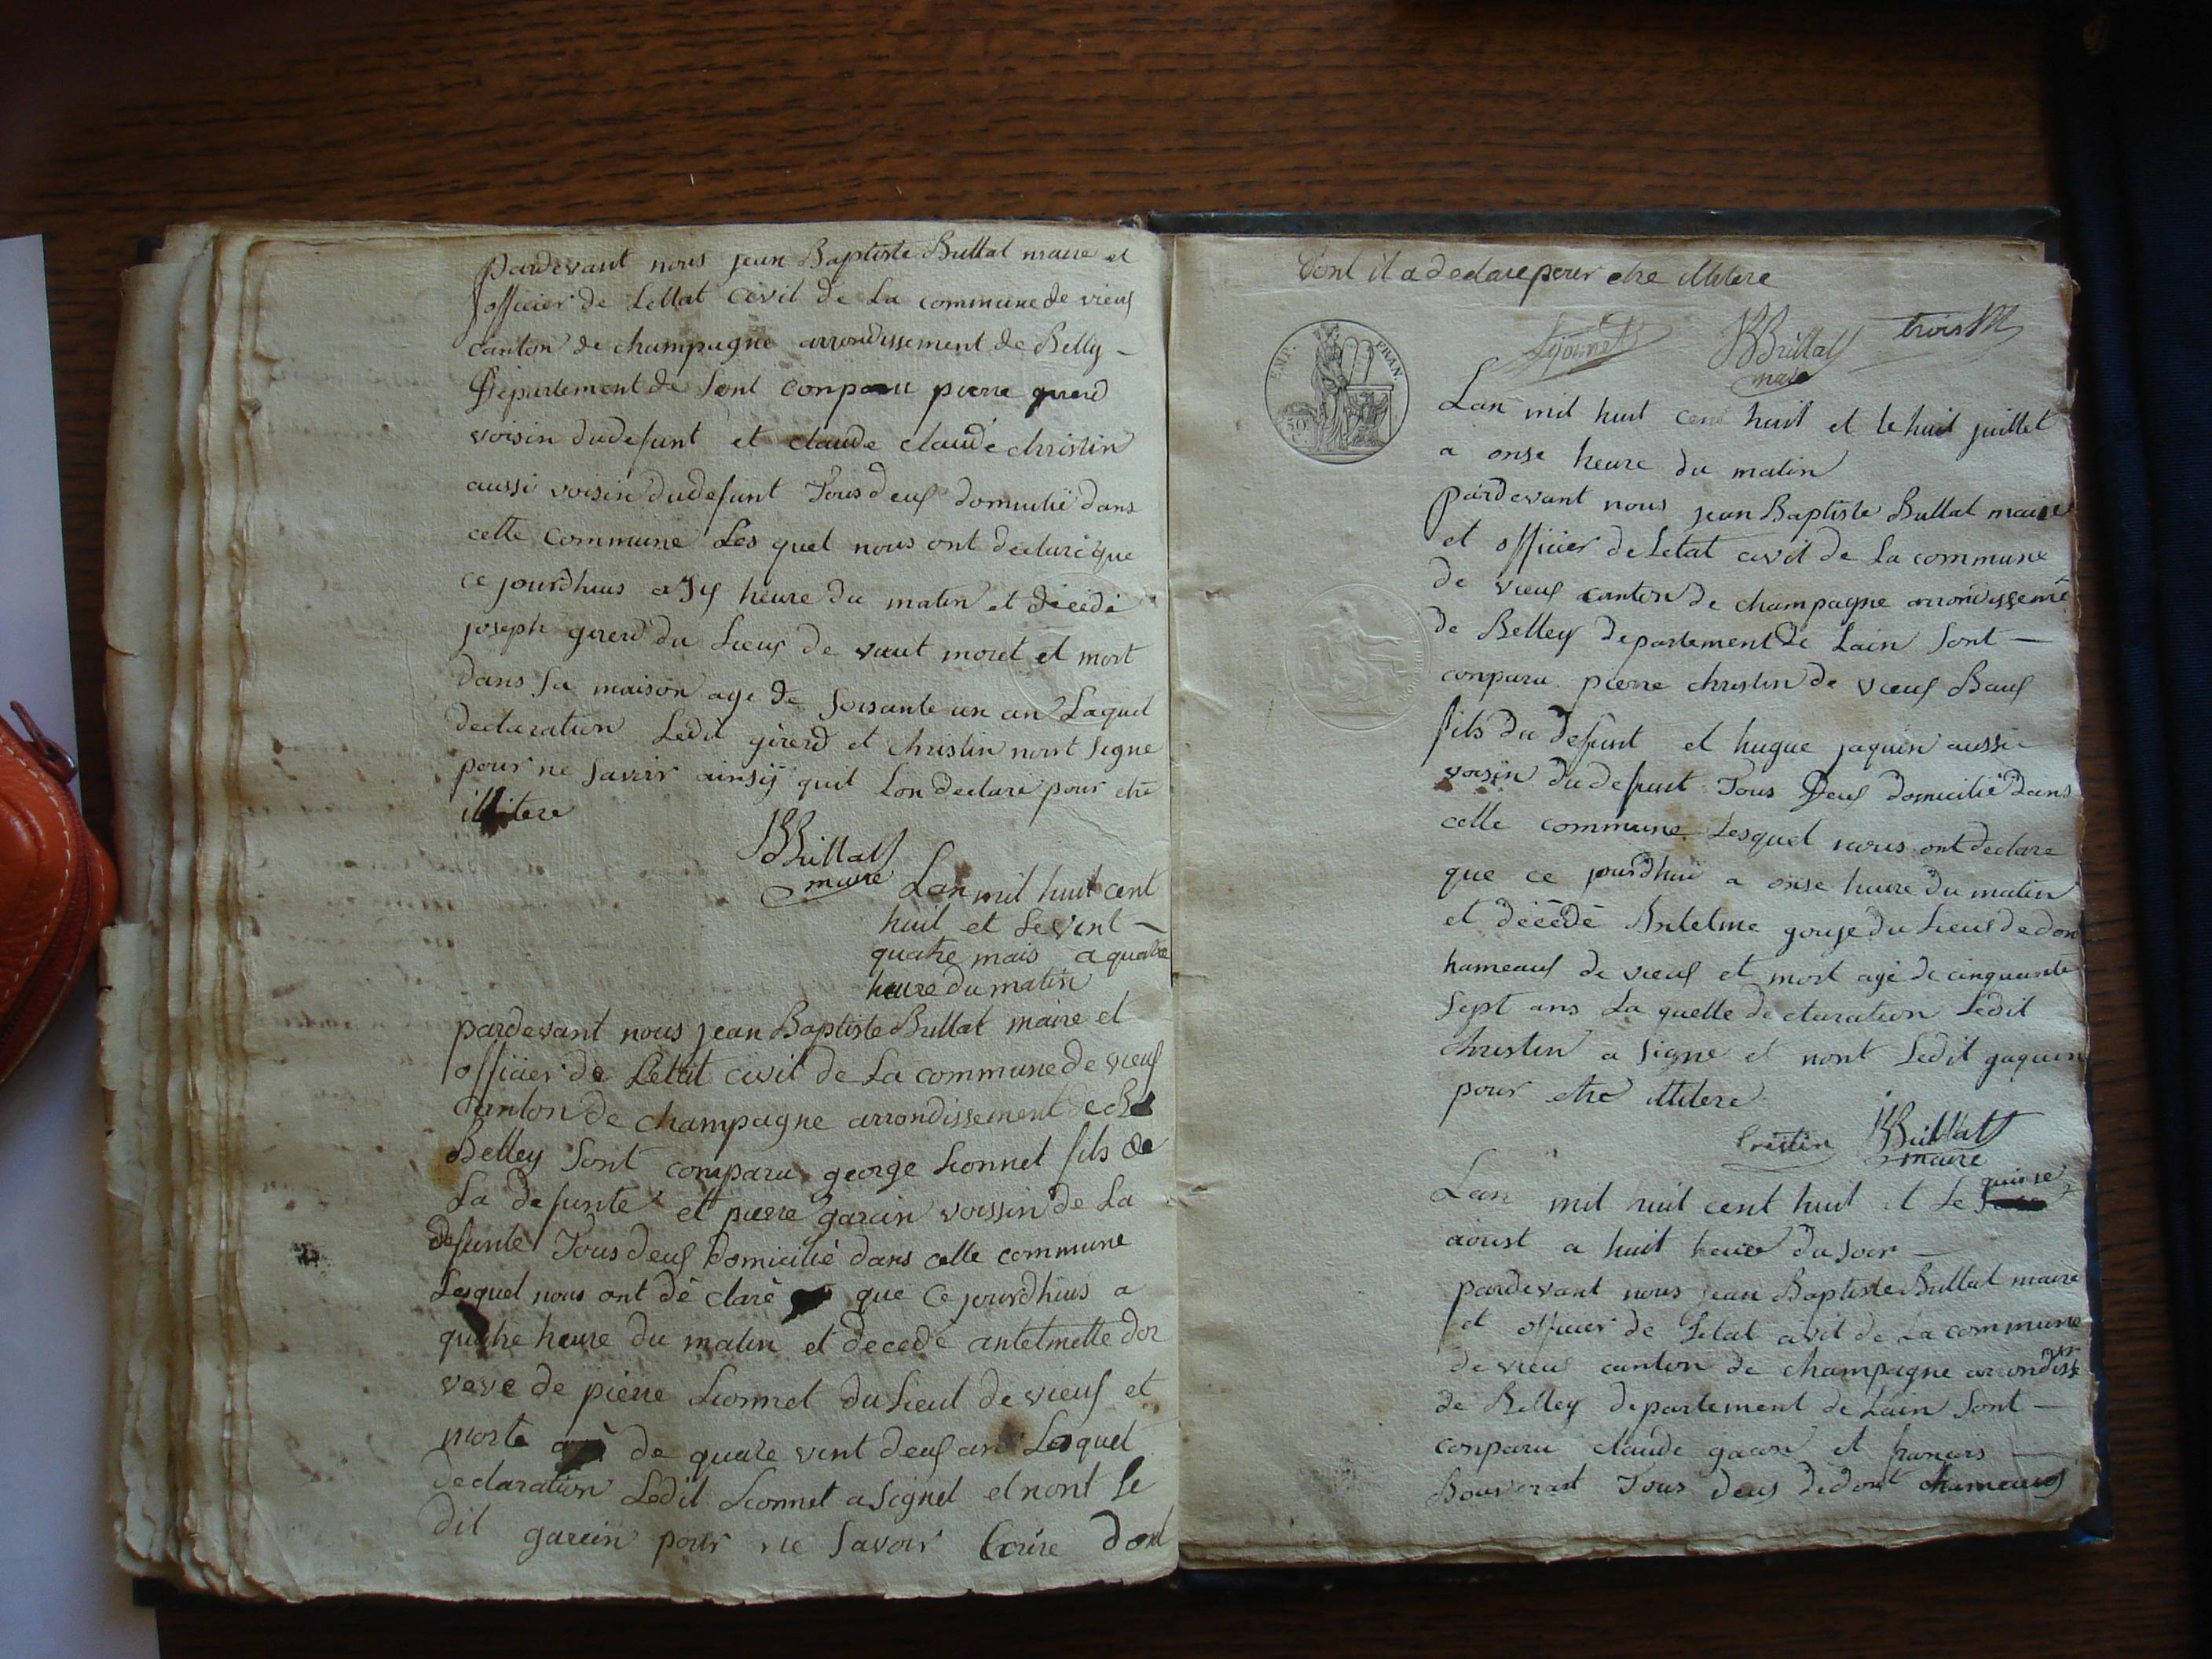 pardevant nous jean Baptiste Buttat maire et
officier de Lettat civil de La commune de vieuf
canton de champagne arrondissement de Belly -
Département de Sont conparu pierre girerd
voisin dudefunt et claude claude christin
aussi voisin dudefunt Tous deuf domicilié dans
cette commune Les quel nous ont declaré que
ce jourdhuis a heure du matin et décédé
joseph girerd du Lieus de vaut moret et mort
dans sa maison age de soisante un an Laquel
declaration Ledit girerd et christin nont signe
pour ne savoir ainsÿ quil Lon declaré pour etre
illitere
JBButtat
maire
Lan mil huit cent
huit et Levint -
quatre mais a quatre
heure du matin
pardevant nous jean Baptiste Buttat maire et
officier de Létat civil de La commune de vieuf
canton de champagne arrondissement de
Belley Sont comparu george Lionnet fils de
La defunte et pierre garcin voissin de La
defunte Tous deuf domicilié dans cette commune
Lesquel nous ont dé claré que ce jourdhuis a
quatre heure du matin et decedé antelmette dor
veve de pierre Lionnet du Lieut de vieuf et
morte agé de quatre vint deuf ans Laquel
declaration Ledit Lionnet a signet et nont Le
dit garcin pour ne savoir Ecrire dont
Dont il a declare pour etre illitere
EMP. FRAN.
50 C
Lyonnet JBButtat
maire
Lan mil huit cent huit et le huit juillet
a onse heure du matin
pardevant nous jean Baptiste Buttat maire
et officier de Letat civil de La commune
de vieuf canton de champagne arrondisseme
de Belley departement de Lain Sont -
conparu pierre christin de vieuf Bauf
fils du defunt et hugue jaquin aussi
voisin du defunt Tous Deuf domicilié dans
cette commune Lesquel nous ont declare
que ce jourdhui a onse heure du matin
et décédé Antelme gouje du Lieus de don
hameauf de vieuf et mort agé de cinquante
sept ans La quelle declaration Ledit
christin a signe et nont Ledit gaquin
pour etre illitere
Cristin JBButtat
maire
quinse
Lan mil huit cent huit et Le
aoust a huit heure du soir -
pardevant nous jean Baptiste Buttat maire
et officier de Letat civil de La commune
de vieuf canton de champagne arrondiss
de Belley departement de Lain Sont -
conparu claude gacon et francois
Bouvrant Tous deus dedont hameauf